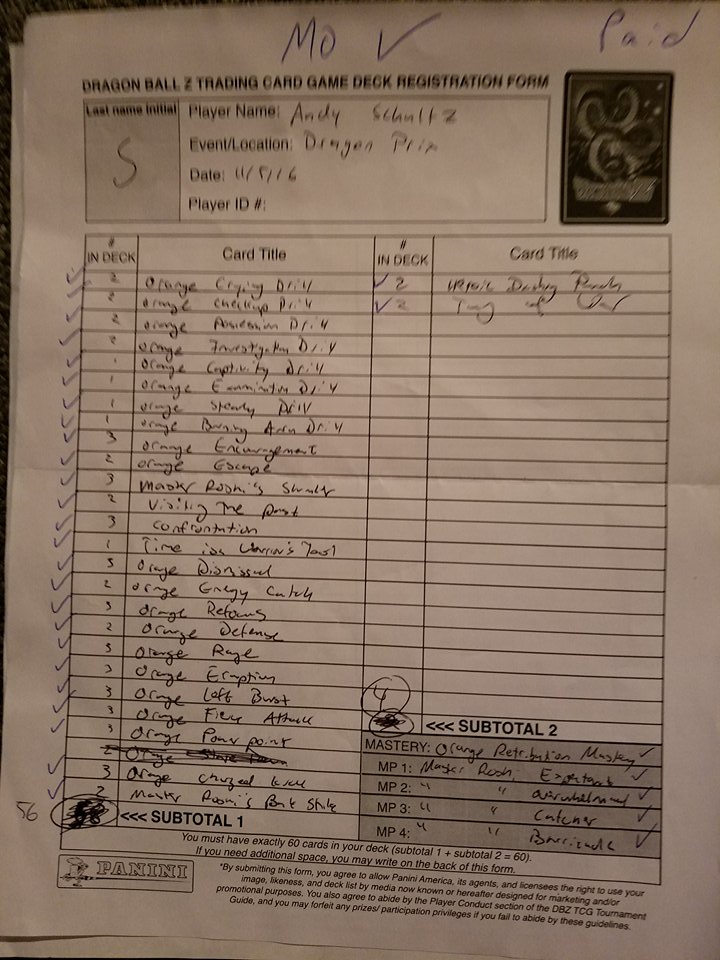 MO ✓ Paid
DRAGON BALL Z TRADING CARD GAME DECK REGISTRATION FORM
Last name Initial
S
Player Name: Andy Schultz
Event/Location: Dragon Prix
Date: 11/5/16
Player ID #:
# IN DECK Card Title
✓ 2 Orange Crying Drill
✓ 2 Orange Checkup Drill
✓ 2 Orange Possession Drill
✓ 2 Orange Investigation Drill
✓ 1 Orange Captivity Drill
✓ 1 Orange Examination Drill
✓ 1 Orange Steady Drill
✓ 1 Orange Burning Aura Drill
✓ 3 Orange Encouragement
✓ 2 Orange Escape
✓ 3 Master Roshi's
✓ 2 Visiting The past
✓ 3 Confrontation
✓ 1 Time is a Warrior's Tool
✓ Orange Dismissal
✓ 2 Orange Energy Catch
✓ 3 Orange Refocus
✓ 2 Orange Defense
✓ Orange Rage
✓ 3 Orange Eruption
✓ 3 Orange Left Burst
✓ 3 Orange Fierce Attack
✓ 3 Orange Power point
2 Orange
✓ 3 Orange Charged Kick
✓ 2 Master Roshi's
56 <<< SUBTOTAL 1
# IN DECK Card Title
✓ 2 Heroic Dashing Punch
✓ 2 Tug of War
4
<<< SUBTOTAL 2
MASTERY: Orange Retribution Mastery ✓
MP 1: Master Roshi ✓
MP 2: " " overwhelmed ✓
MP 3: " " Catcher ✓
MP 4: " " Barricade ✓
You must have exactly 60 cards in your deck (subtotal 1 + subtotal 2 = 60).
If you need additional space, you may write on the back of this form.
PANINI
*By submitting this form, you agree to allow Panini America, its agents, and licensees the right to use your
image, likeness, and deck list by media now known or hereafter designed for marketing and/or
promotional purposes. You also agree to abide by the Player Conduct section of the DBZ TCG Tournament
Guide, and you may forfeit any prizes/ participation privileges if you fail to abide by these guidelines.